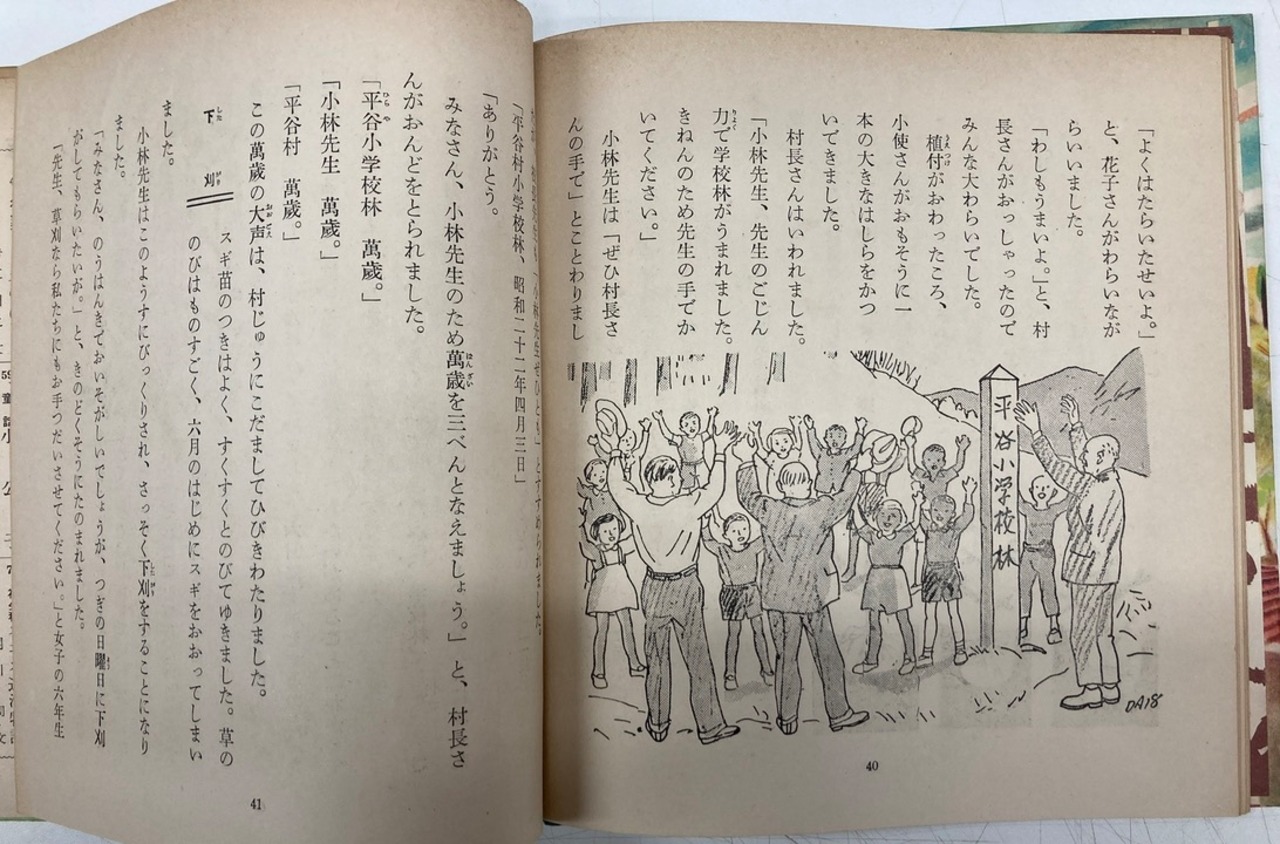 「よくはたらいたせいよ。」
と、花子さんがわらいなが
らいいました。
「わしもうまいよ。」と、村
長さんがおっしゃったので
みんな大わらいでした。
植付がおわったころ、
小使さんがおもそうに一
本の大きなはしらをかつ
いできました。
村長さんはいわれました。
「小林先生、先生のごじん
力で学校林がうまれました。
きねんのため先生の手でか
いてください。」
小林先生は「ぜひ村長さ
んの手で」とことわりまし
平谷小学校林
DAI8
40
「小林先生ぜひとも」とすすめられました。
「平谷村小学校林、昭和二十二年四月三日」
「ありがとう。
みなさん、小林先生のため萬歳を三べんとなえましょう。」と、村長さ
んがおんどをとられました。
「平谷小学校林　萬歳。」
「小林先生　萬歳。」
「平谷村　萬歳。」
この萬歳の大声は、村じゅうにこだましてひびきわたりました。
下刈
スギ苗のつきはよく、すくすくとのびてゆきました。草の
のびはものすごく、六月のはじめにスギをおおってしまい
ました。
小林先生はこのようすにびっくりされ、さっそく下刈をすることになり
ました。
「みなさん、のうはんきでおいそがしいでしょうが、つぎの日曜日に下刈
がしてもらいたいが。」と、きのどくそうにたのまれました。
「先生、草刈なら私たちにもお手つだいさせてください。」と女子の六年生
41
59
童話